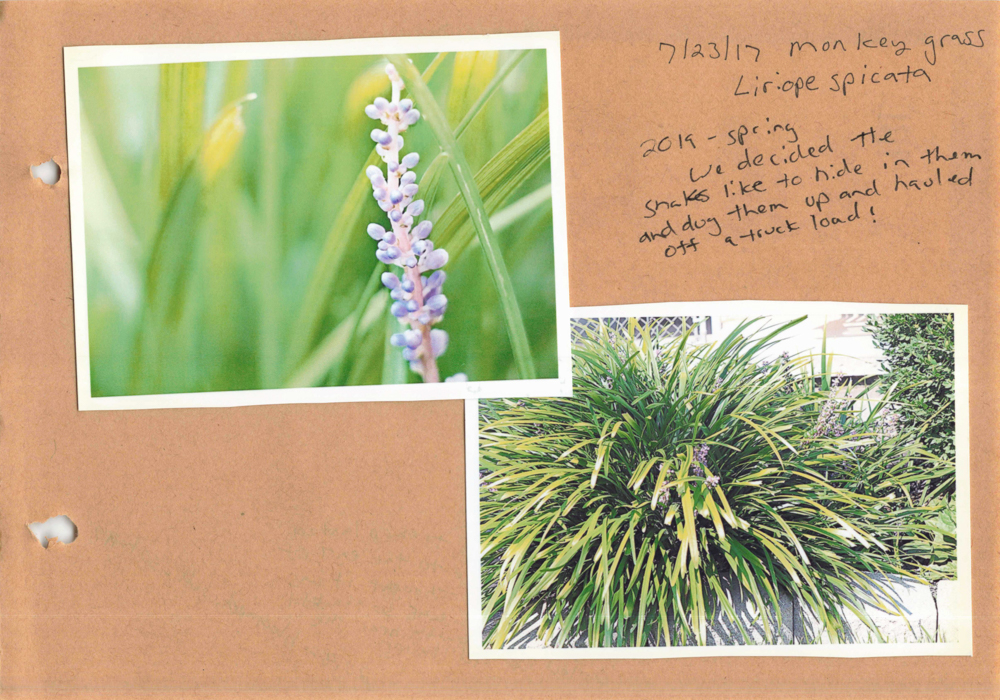 7/23/17 monkey grass
Liriope spicata
2019 - spring
we decided the
snakes like to hide in them
and dug them up and hauled
off a truck load!